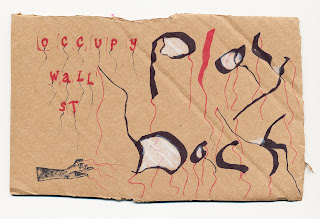 OCCUPY
WALL
ST
Play